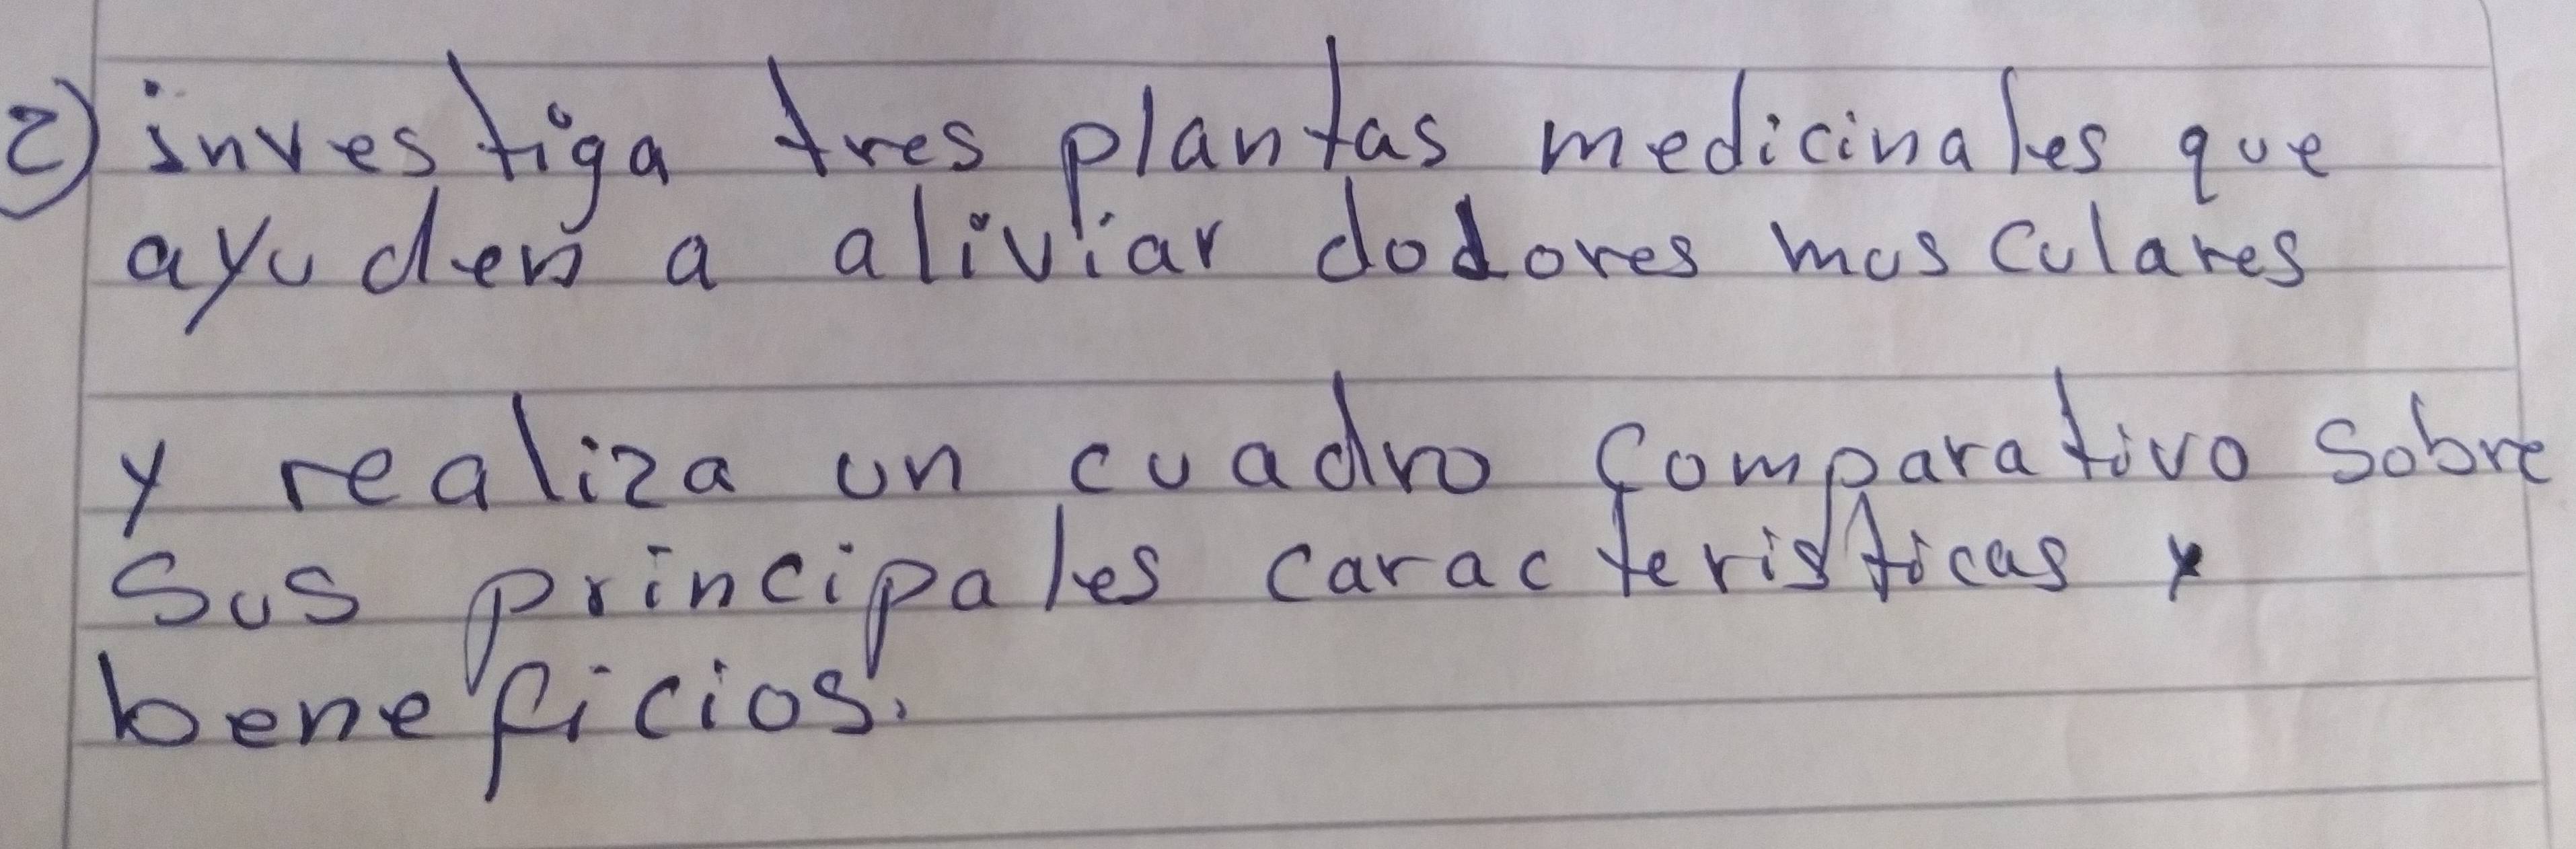 2) investiga tres plantas medicinales que
ayuden a aliviar dolores musculares
y realiza un cuadro comparativo sobre
Sus principales caracteristicas y
beneficios.